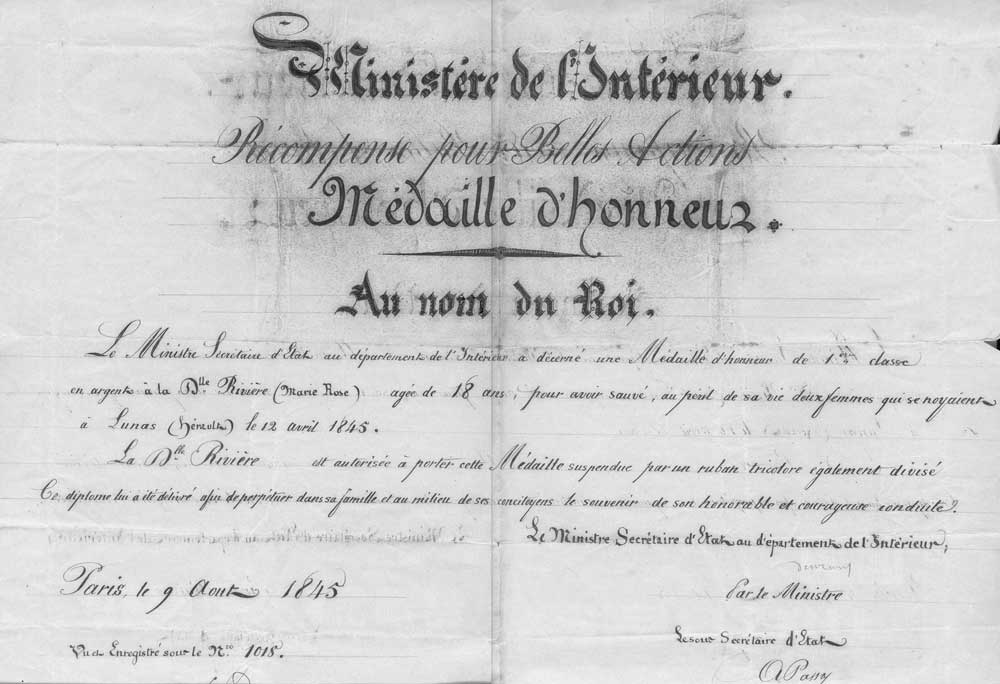 Ministére de l'Intérieur.
Récompense pour Belles Actions
Médaille d'honneur.
Au nom du Roi.
Le Ministre Secrétaire d'Etat au département de l'Intérieur a décerné une Médaille d'honneur de 1ere classe
en argent à la Dlle Rivière (Marie Rose) agée de 18 ans, pour avoir sauvé, au péril de sa vie deux femmes qui se noyaient
à Lunas (hérault) le 12 avril 1845.
La Dlle Rivière est autorisée à porter cette Médaille suspendue par un ruban tricolore également divisé
Ce diplome lui a été délivré afin de perpétuer dans sa famille et au milieu de ses concitoyens le souvenir de son honorable et courageuse conduite.
Le Ministre Secrétaire d'Etat au département de l'Intérieur,
Paris, le 9 Aout 1845
Par le Ministre
Le sous Secrétaire d'Etat
Vu et Enregistré sous le Nro 1015.
A Passy